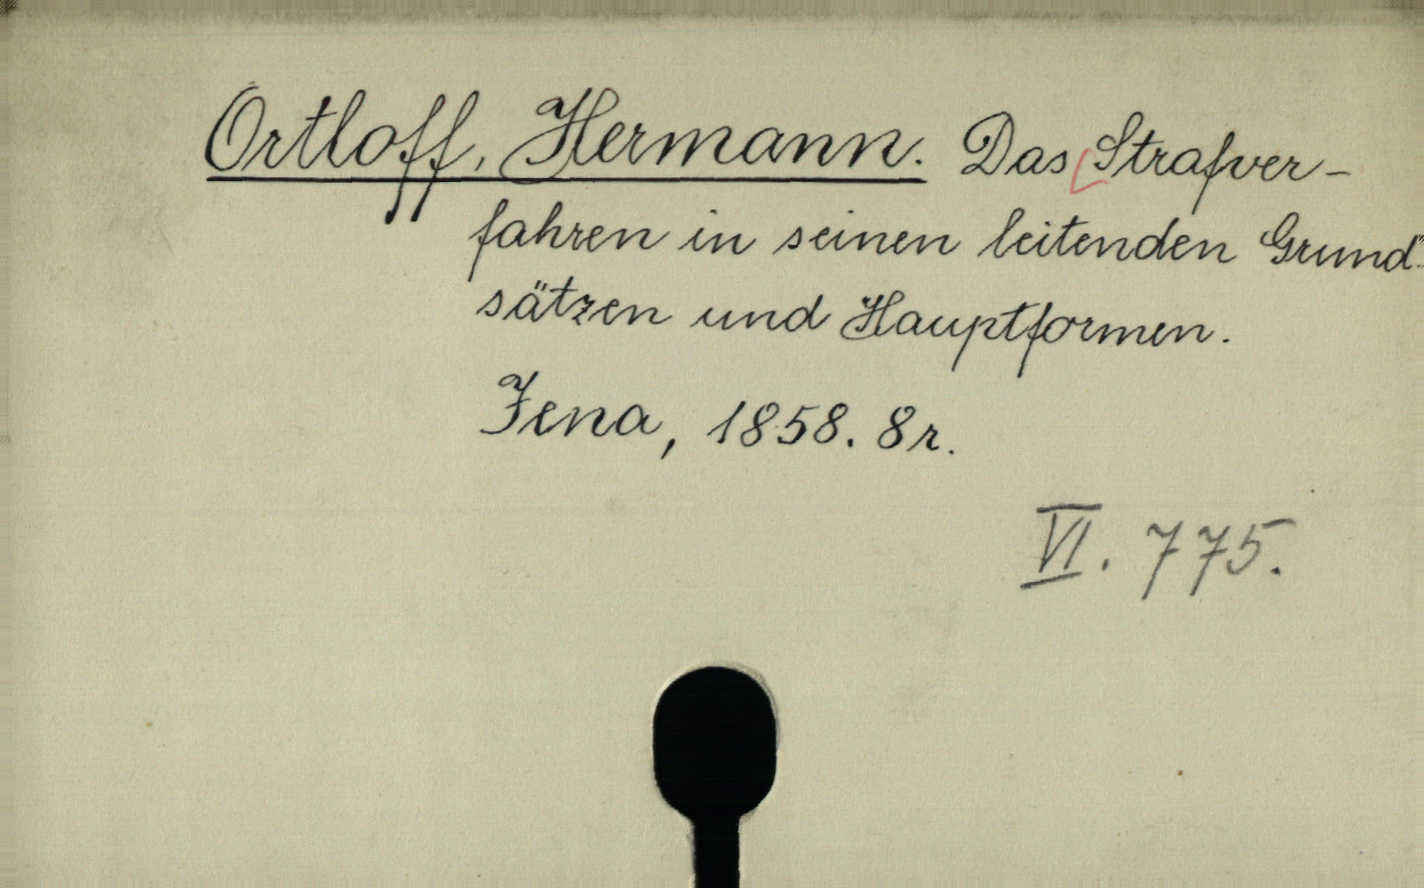 Ortloff, Hermann. Das Strafver-
fahren in seinen leitenden Grund-
sätzen und Hauptformen.
Jena, 1858. 8r.
VI. 775.